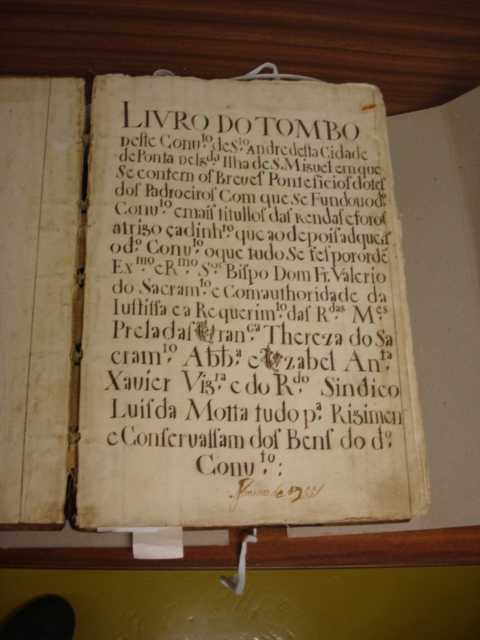 LIVRO DO TOMBO
neste Conv.to de S.to Andre desta Cidade
de Ponta delg.da Ilha de S. Miguel em que
Se contem os Breves Ponteficios dotes
dos Padroeiros Com que Se Fundou o d.o
Conv.to e mais titullos das Rendas e foros
a trigo e a dinh.ro que ao depois adque
o d.o Conv.to o que tudo Se fes por orde
Ex.mo e R.mo S.or Bispo Dom Fr. Valerio
do Sacram.to e Com authoridade da
Iustissa e a Requerim.to das R.das M.es
Preladas Fran.ca Thereza do Sa
cram.to Abb.a e Izabel An.ta
Xavier Vig.ra e do R.do Sindico
Luis da Motta tudo p.a Rigimen
e Conservassam dos Bens do d.o
Conv.to: